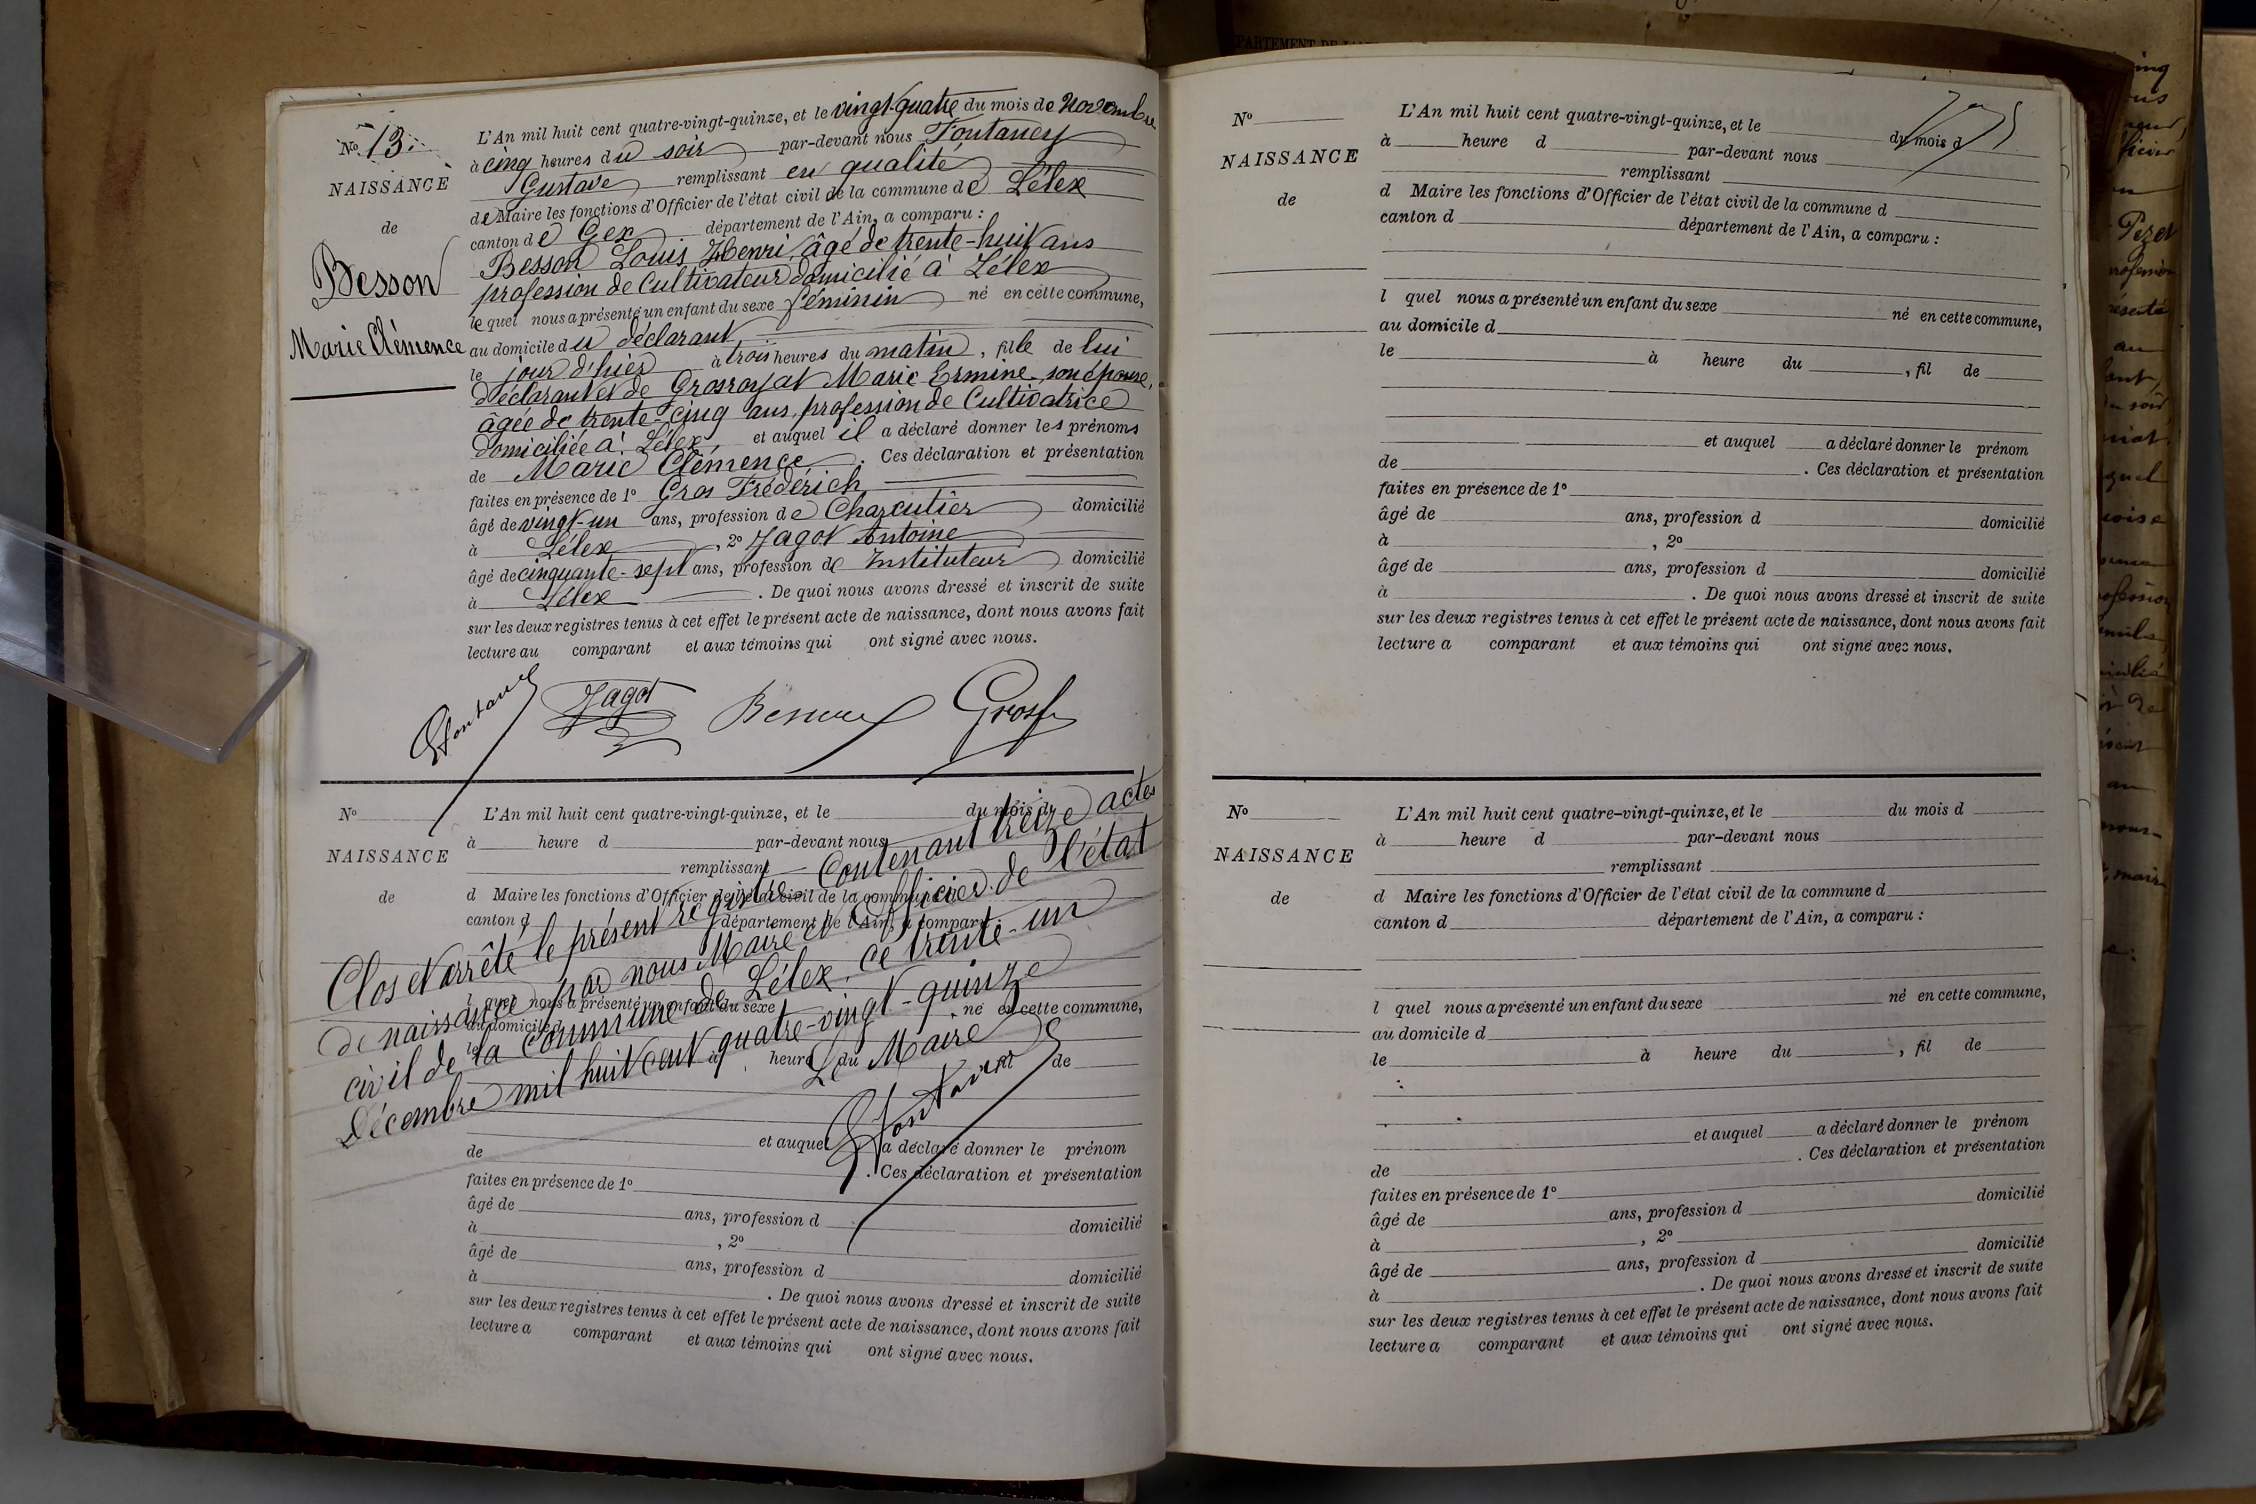 No 13.
NAISSANCE
de
Besson
Marie Clémence
L'An mil huit cent quatre-vingt-quinze, et le vingt-quatre du mois de Novembre
à cinq heures du soir par-devant nous Fontaney
Gustave remplissant en qualité
de Maire les fonctions d'Officier de l'état civil de la commune de Lélex
canton de Gex département de l'Ain, a comparu :
Besson Louis Henri, âgé de trente-huit ans
profession de Cultivateur domicilié à Lélex
lequel nous a présenté un enfant du sexe féminin né en cette commune,
au domicile du déclarant
le jour d'hier à trois heures du matin, fille de lui
déclarant et de Grosroyat Marie Ermine, son épouse,
âgée de trente-cinq ans, profession de Cultivatrice
domiciliée à Lélex, et auquel il a déclaré donner les prénoms
de Marie Clémence. Ces déclaration et présentation
faites en présence de 1º Gros Fréderich
âgé de vingt-un ans, profession de Charcutier domicilié
à Lélex, 2º Jagot Antoine
âgé de cinquante-sept ans, profession de Instituteur domicilié
à Lélex. De quoi nous avons dressé et inscrit de suite
sur les deux registres tenus à cet effet le présent acte de naissance, dont nous avons fait
lecture au comparant et aux témoins qui ont signé avec nous.
Jagot
No
NAISSANCE
de
L'An mil huit cent quatre-vingt-quinze, et le du mois d
à heure d par-devant nous
remplissant
d Maire les fonctions d'Officier de l'état civil de la commune d
canton d département de l'Ain, a comparu :
l quel nous a présenté un enfant du sexe né en cette commune,
au domicile d
le à heure du fil de
et auquel a déclaré donner le prénom
de . Ces déclaration et présentation
faites en présence de 1º
âgé de ans, profession d domicilié
à , 2º
âgé de ans, profession d domicilié
à . De quoi nous avons dressé et inscrit de suite
sur les deux registres tenus à cet effet le présent acte de naissance, dont nous avons fait
lecture a comparant et aux témoins qui ont signé avec nous.
Clos et arrêté le présent registre Contenant treize actes
de naissance par nous Maire et officier de l'état
civil de la Commune de Lélex, ce trente-un
Décembre mil huit cent quatre-vingt-quinze
Le Maire
No
NAISSANCE
de
L'An mil huit cent quatre-vingt-quinze, et le du mois d
à heure d par-devant nous
remplissant
d Maire les fonctions d'Officier de l'état civil de la commune d
canton d département de l'Ain, a comparu :
l quel nous a présenté un enfant du sexe né en cette commune,
au domicile d
le à heure du , fil de
et auquel a déclaré donner le prénom
de . Ces déclaration et présentation
faites en présence de 1º
âgé de ans, profession d domicilié
à , 2º
âgé de ans, profession d domicilié
à . De quoi nous avons dressé et inscrit de suite
sur les deux registres tenus à cet effet le présent acte de naissance, dont nous avons fait
lecture a comparant et aux témoins qui ont signé avec nous.
No
NAISSANCE
de
L'An mil huit cent quatre-vingt-quinze, et le du mois d
à heure d par-devant nous
remplissant
d Maire les fonctions d'Officier de l'état civil de la commune d
canton d département de l'Ain, a comparu :
l quel nous a présenté un enfant du sexe né en cette commune,
au domicile d
le à heure du , fil de
et auquel a déclaré donner le prénom
de . Ces déclaration et présentation
faites en présence de 1º
âgé de ans, profession d domicilié
à , 2º
âgé de ans, profession d domicilié
à . De quoi nous avons dressé et inscrit de suite
sur les deux registres tenus à cet effet le présent acte de naissance, dont nous avons fait
lecture a comparant et aux témoins qui ont signé avec nous.